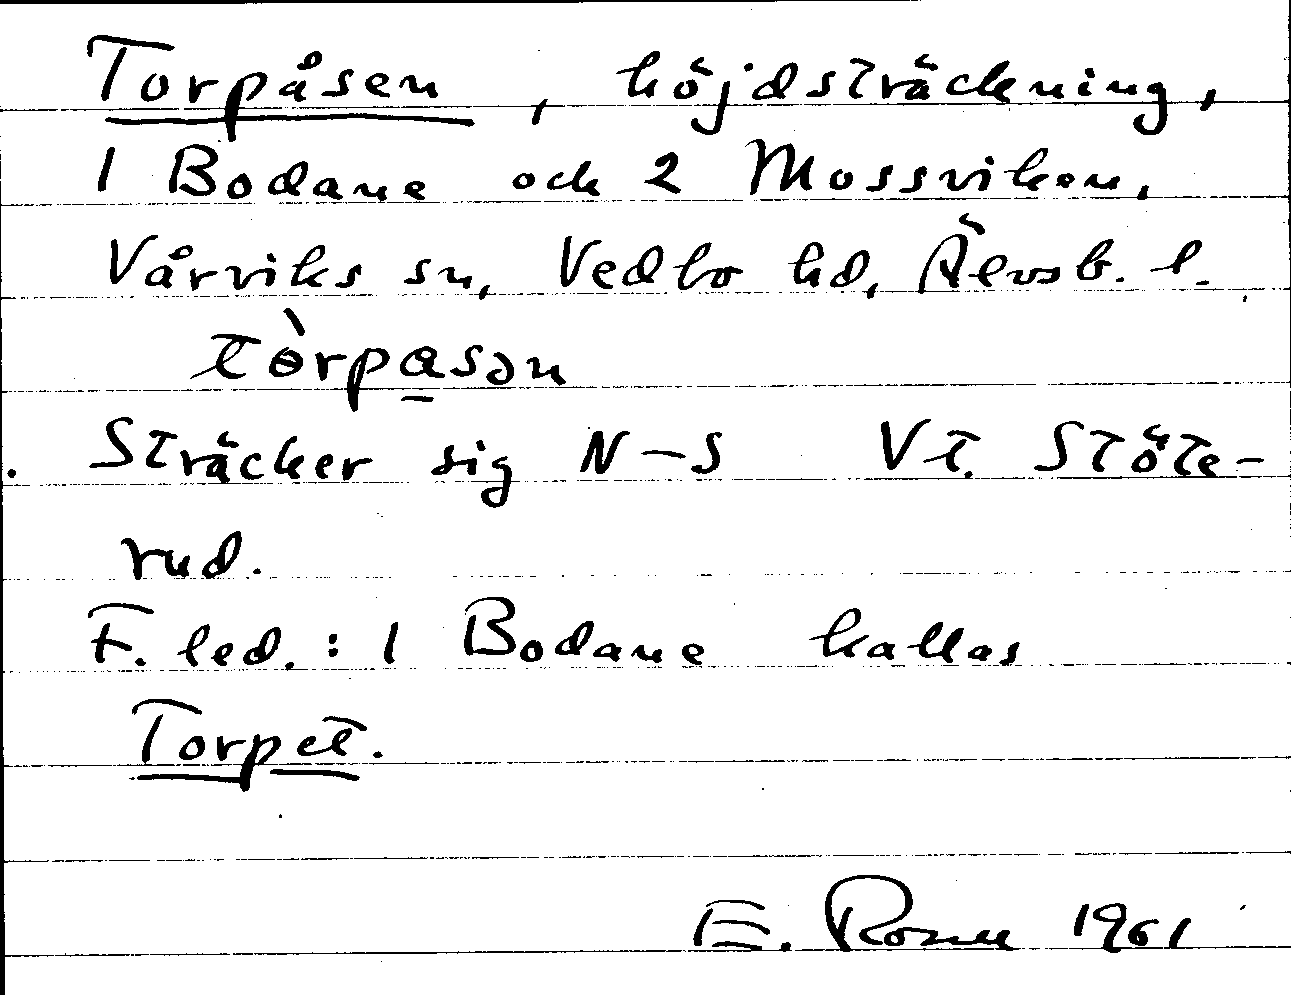 Torpåsen, höjdsträckning,
1 Bodane och 2 Mossviken,
Vårviks sn, Vedbo hd, Älvsb. l.
tòrpa̱sən
Sträcker sig N-S V t. Stöte-
rud.
F. led. : 1 Bodane kallas
Torpet.
E. 1961